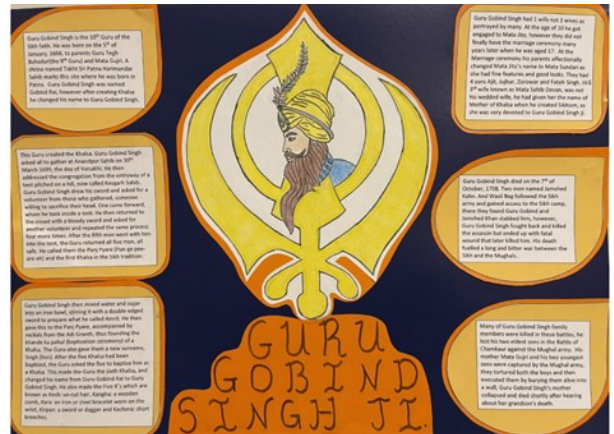 Guru Gobind Singh is the 10th Guru of the
Sikh faith. He was born on the 5th of
January, 1666, to parents Guru Tegh
Bahadur(the 9th Guru) and Mata Gujri. A
shrine named Takht Sri Patna Harimandar
Sahib marks this site where he was born in
Patna. Guru Gobind Singh was named
Gobind Rai, however after creating Khalsa
he changed his name to Guru Gobind Singh.
This Guru created the Khalsa. Guru Gobind Singh
asked all to gather at Anandpur Sahib on 30th
March 1699, the day of Vaisakhi. He then
addressed the congregation from the entryway of a
tent pitched on a hill, now called Kesgarh Sahib.
Guru Gobind Singh drew his sword and asked for a
volunteer from those who gathered, someone
willing to sacrifice their head. One came forward,
whom he took inside a tent. He then returned to
the crowd with a bloody sword and asked for
another volunteer and repeated the same process
four more times. After the fifth man went with him
into the tent, the Guru returned all five men, all
safe. He called them the Panj Pyare
and the first Khalsa in the Sikh tradition.
Guru Gobind Singh then mixed water and sugar
into an iron bowl, stirring it with a double-edged
sword to prepare what he called Amrit. He then
gave this to the Panj Pyare, accompanied by
recitals from the Adi Granth, thus founding the
khande ka pahul (baptisation ceremony) of a
Khalsa. The Guru also gave them a new surname,
Singh (lion). After the five Khalsa had been
baptized, the Guru asked the five to baptise him as
a Khalsa. This made the Guru the sixth Khalsa, and
changed his name from Guru Gobind Rai to Guru
Gobind Singh. He also made the Five K's which are
known as Kesh: un-cut hair, Kangha: a wooden
comb, Kara: an iron or steel bracelet worn on the
wrist, Kirpan: a sword or dagger and Kachera: short
breeches.
GURU
GOBIND
SINGH JI.
Guru Gobind Singh had 1 wife not 3 wives as
portrayed by many. At the age of 10 he got
engaged to Mata Jito, however they did not
finally have the marriage ceremony many
years later when he was aged 17. At the
Marriage ceremony his parents affectionally
changed Mata Jito's name to Mata Sundari as
she had fine features and good looks. They had
4 sons Ajit, Jujhar, Zorowar and Fateh Singh. His
3rd wife known as Mata Sahib Devan, was not
his wedded wife, he had given her the name of
Mother of Khalsa when he created Sikhism, as
she was very devoted to Guru Gobind Singh ji.
Guru Gobind Singh died on the 7th of
October, 1708. Two men named Jamshed
Kahn. And Wasil Beg followed the Sikh
army and gained access to the Sikh camp,
there they found Guru Gobind and
Jamshed Khan stabbed him, however,
Guru Gobind Singh fought back and killed
the assassin but ended up with fatal
wound that later killed him. His death
fuelled a long and bitter war between the
Sikh and the Mughals.
Many of Guru Gobind Singh family
members were killed in these battles, he
lost his two eldest sons in the Battle of
Chamkaur against the Mughal army. His
mother Mata Gujri and his two youngest
sons were captured by the Mughal army,
they tortured both the boys and then
executed them by burying them alive into
a wall, Guru Gobind Singh's mother
collapsed and died shortly after hearing
about her grandson's death.